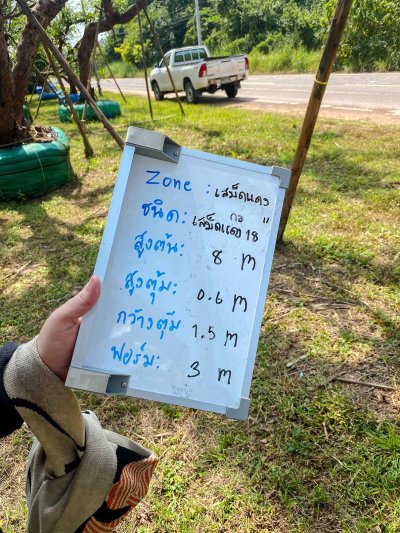 Zone : เสม็ดแดง
ชนิด: เสม็ดแดง กอ 18 "
สูงต้น: 8 m
สูงตุ้ม: 0.6 m
กว้างตุ้ม 1.5 m
ฟอร์ม: 3 m